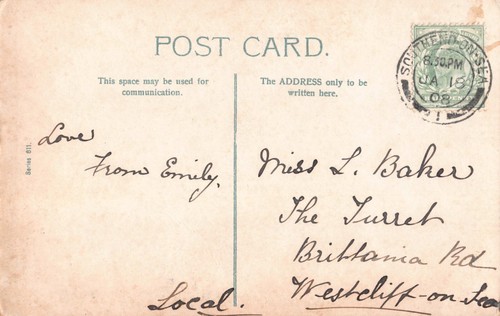 POST CARD.
This space may be used for
communication.
The ADDRESS only to be
written here.
SOUTHEND-ON-SEA
8.30 PM
JA 18
08
Series 611.
Love
From Emily.
Miss L. Baker
The Turret
Brittania Rd
Westcliff-on-Sea
Local.